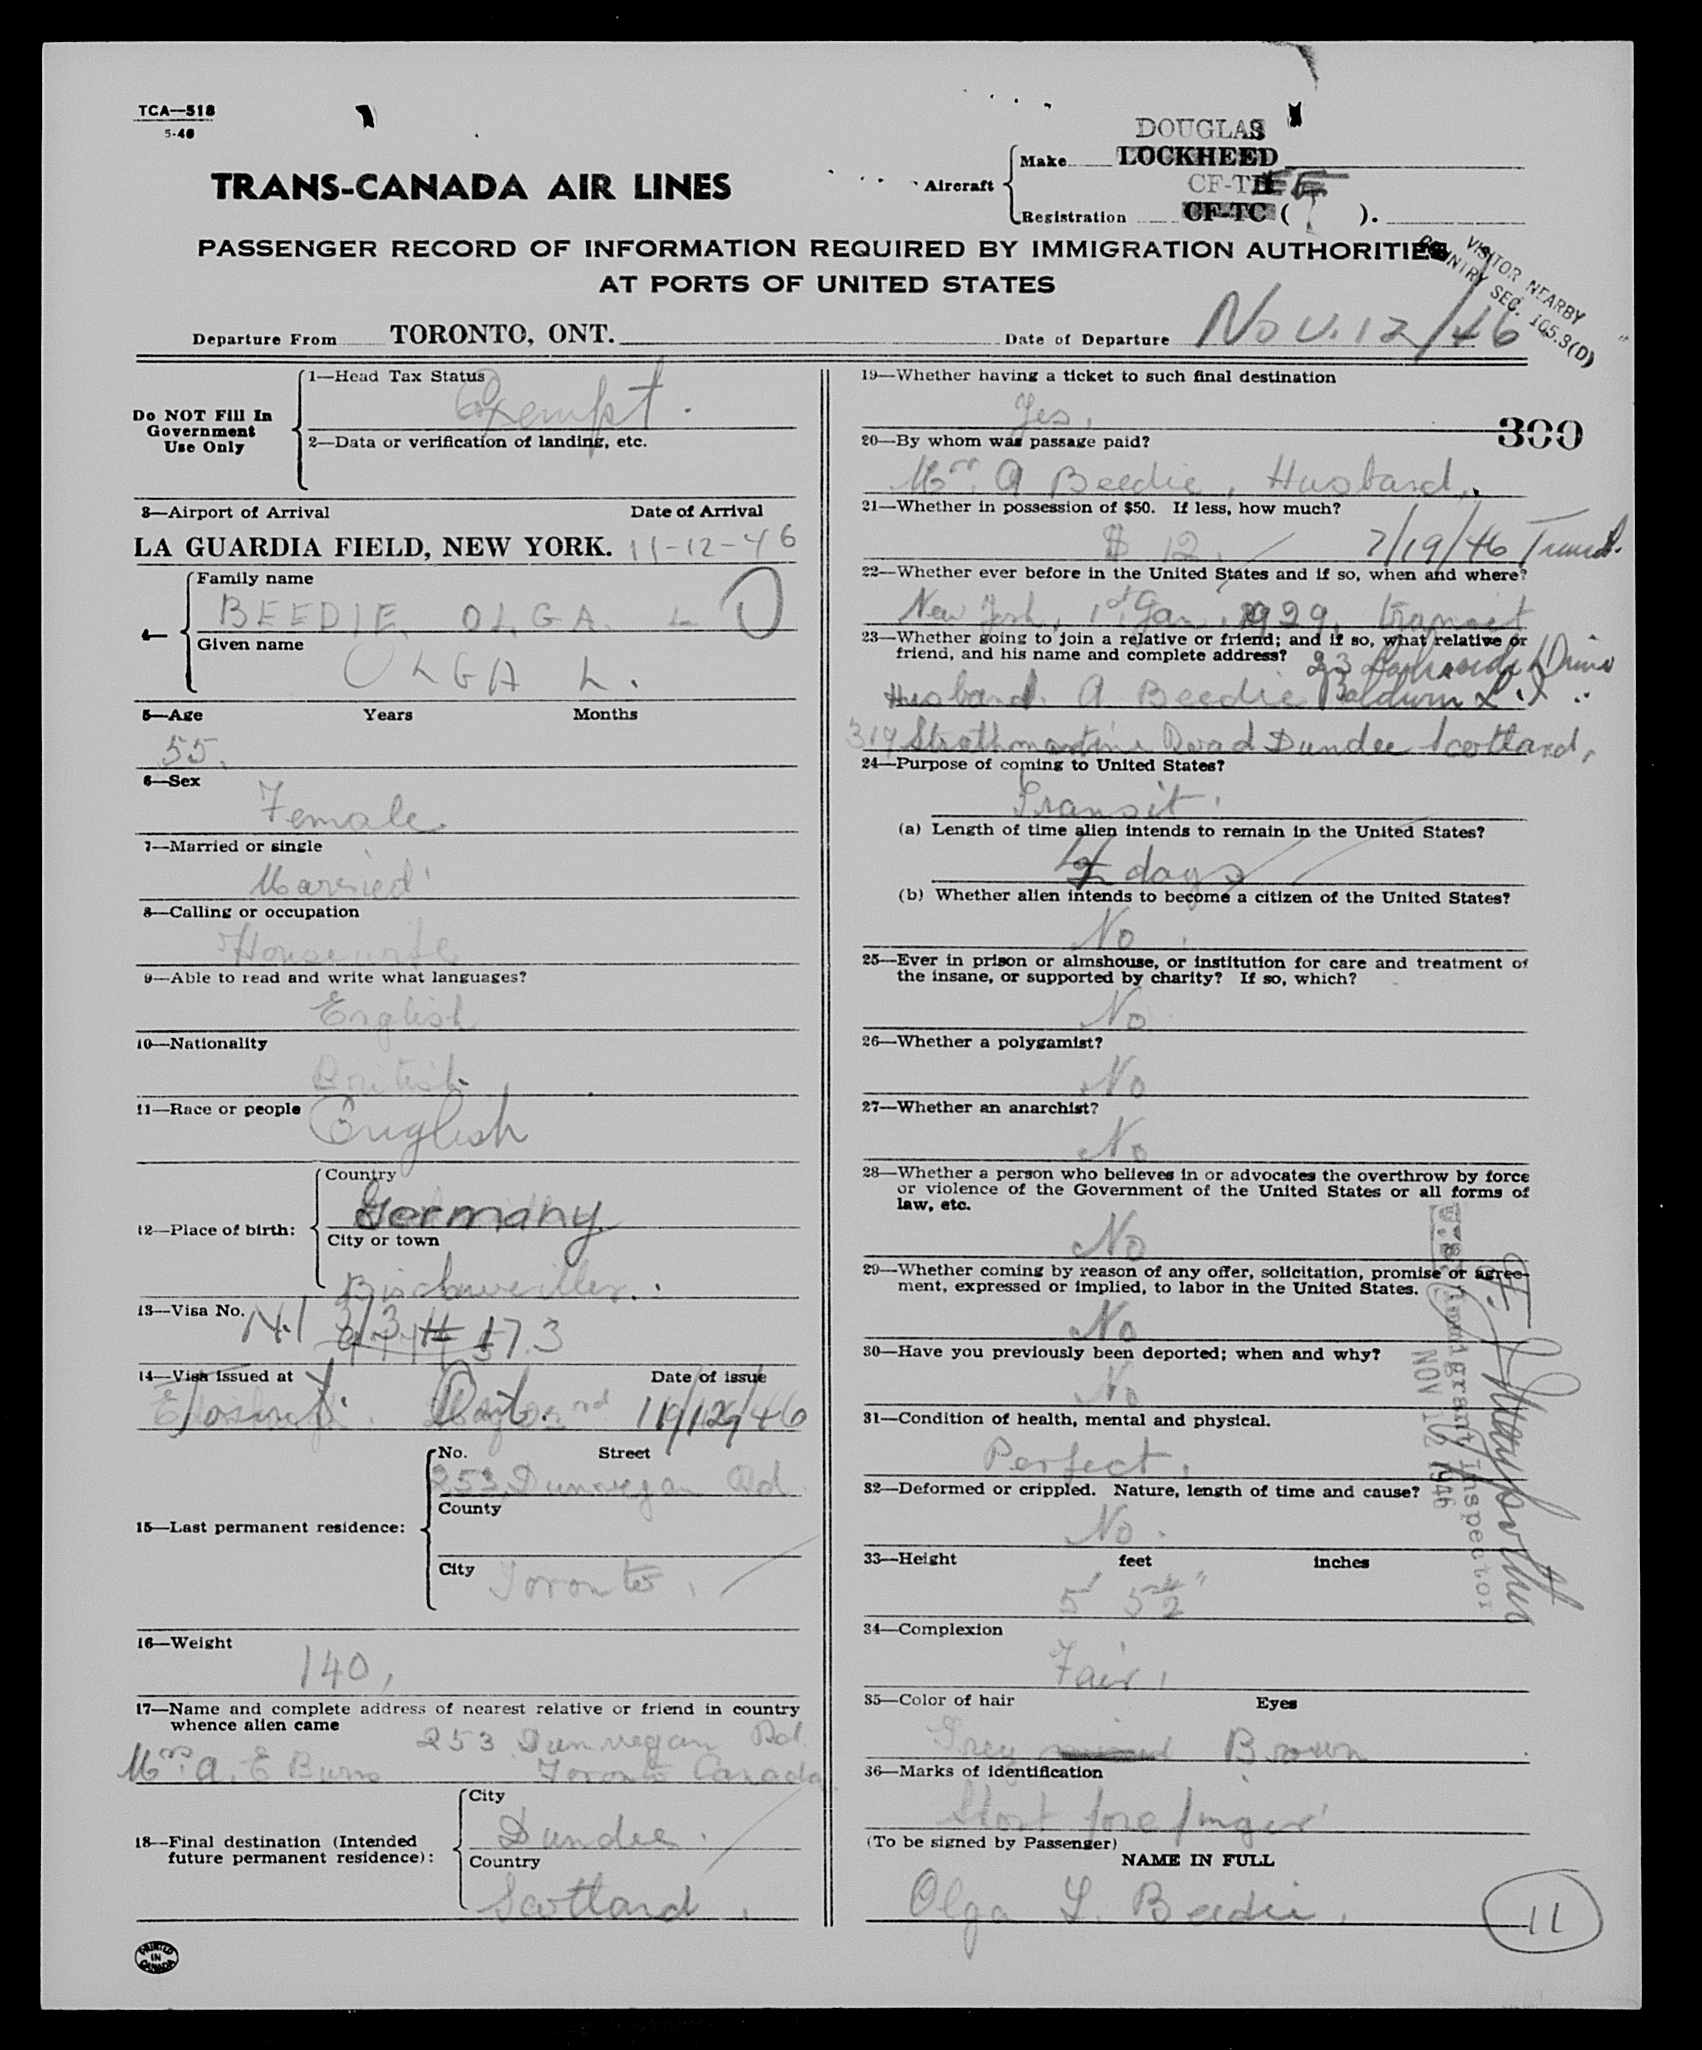 TCA—518
5-46
DOUGLAS
Make LOCKHEED
TRANS-CANADA AIR LINES
Aircraft
CF-T
Registration CF-TC ( ).
PASSENGER RECORD OF INFORMATION REQUIRED BY IMMIGRATION AUTHORITIES
AT PORTS OF UNITED STATES
VISITOR NEARBY
COUNTRY SEC. 105.3(D)
Departure From TORONTO, ONT. Date of Departure Nov. 12/46
Do NOT Fill In
Government
Use Only
1—Head Tax Status
Exempt.
2—Data or verification of landing, etc.
3—Airport of Arrival Date of Arrival
LA GUARDIA FIELD, NEW YORK. 11-12-46
4—
Family name
BEEDIE OLGA L
Given name
OLGA L.
5—Age Years Months
55.
6—Sex
Female
7—Married or single
Married
8—Calling or occupation
Housewife
9—Able to read and write what languages?
English
10—Nationality
British
11—Race or people
English
12—Place of birth:
Country
Germany
City or town
Bischweiller.
13—Visa No.
14—Visa issued at Date of issue
Ont. 11/12/46
15—Last permanent residence:
No. Street
253 Dunvegan Rd
County
City Toronto
16—Weight
140,
17—Name and complete address of nearest relative or friend in country
whence alien came
253 Dunvegan Rd.
Mrs. A. E Burns Toronto Canada
18—Final destination (Intended
future permanent residence):
City
Dundee.
Country
Scotland
PRINTED
IN
CANADA
19—Whether having a ticket to such final destination
Yes.
300
20—By whom was passage paid?
Mr. A Beedie, Husband.
21—Whether in possession of $50. If less, how much?
$ 12. 7/19/46 Transit.
22—Whether ever before in the United States and if so, when and where?
New York, 1st Jan. 1929, transit
23—Whether going to join a relative or friend; and if so, what relative or
friend, and his name and complete address?
23 Drive
Husband. A Beedie Baldwin L.I.
319 Strathmartine Road Dundee Scotland,
24—Purpose of coming to United States?
Transit.
(a) Length of time alien intends to remain in the United States?
4 days
(b) Whether alien intends to become a citizen of the United States?
No
25—Ever in prison or almshouse, or institution for care and treatment of
the insane, or supported by charity? If so, which?
No
26—Whether a polygamist?
No
27—Whether an anarchist?
No
28—Whether a person who believes in or advocates the overthrow by force
or violence of the Government of the United States or all forms of
law, etc.
No
29—Whether coming by reason of any offer, solicitation, promise or agree-
ment, expressed or implied, to labor in the United States.
No
30—Have you previously been deported; when and why?
No
31—Condition of health, mental and physical.
Perfect.
32—Deformed or crippled. Nature, length of time and cause?
No.
33—Height feet inches
5' 5½"
34—Complexion
Fair,
35—Color of hair Eyes
Grey Brown
36—Marks of identification
Short forefinger
(To be signed by Passenger)
NAME IN FULL
Olga L. Beedie.
11
U.S. Immigrant Inspector
NOV 12 1946